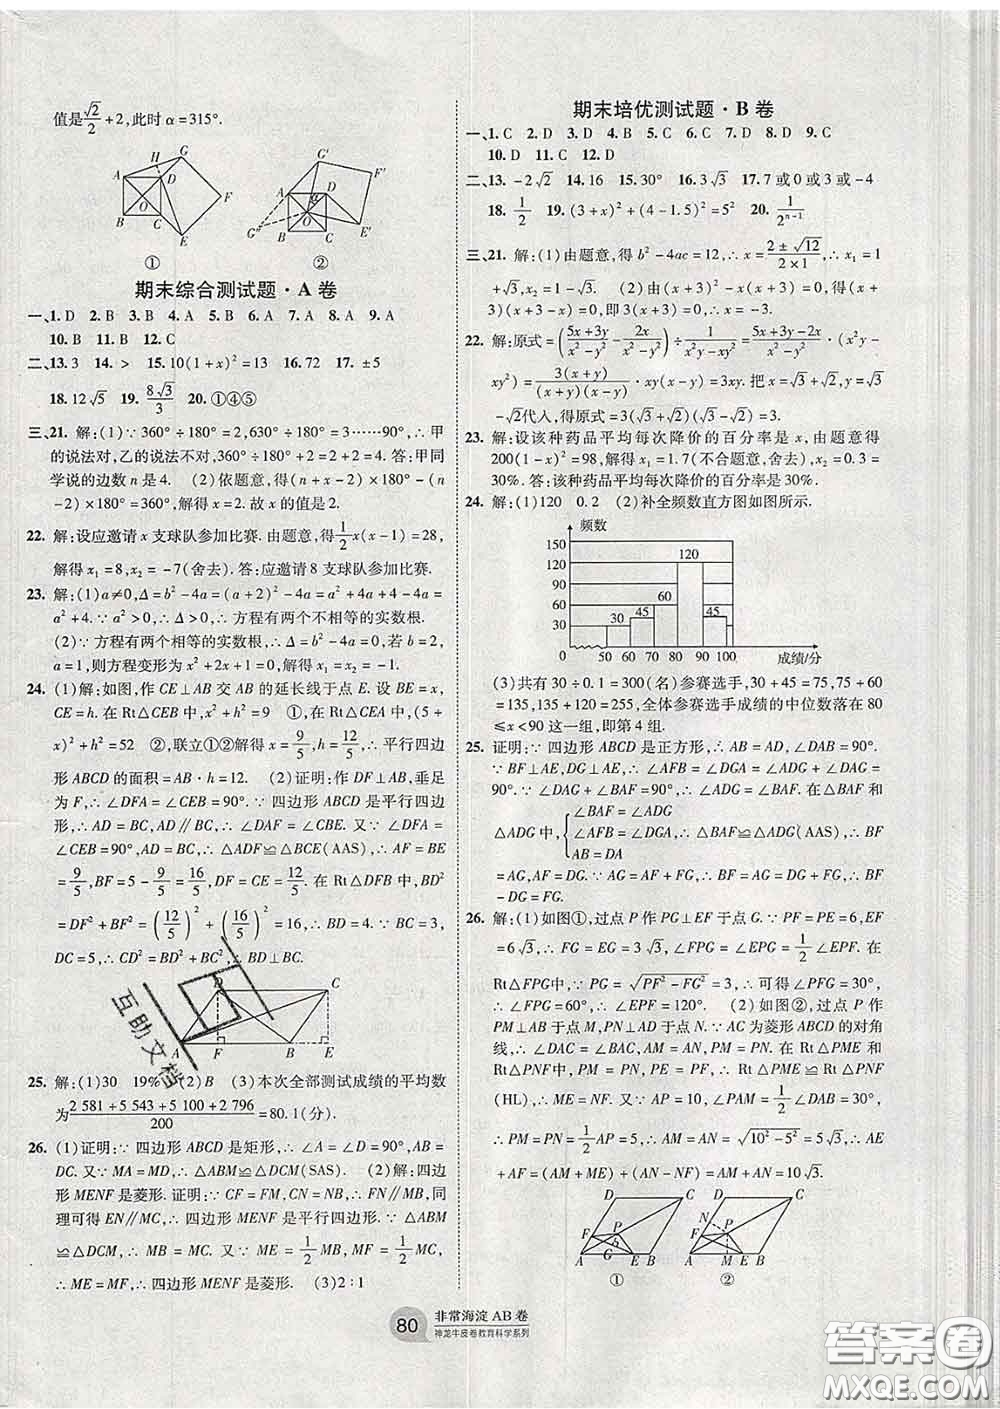 值是√2/2+2,此时 α=315°.
H G A D F O B C E
G′ F′ A D α O B C G″ E′
① ②
期末综合测试题·A 卷
一、1. D 2. B 3. B 4. A 5. A 6. A 7. A 8. A 9. A
10. B 11. B 12. C
二、13. 3 14. > 15. 10(1+x)²=13 16. 72 17. ±5
18. 12√5 19. 8√3/3 20. ①④⑤
三、21. 解:(1)∵360°÷180°=2,630°÷180°=3……90°,∴甲
的说法对,乙的说法不对,360°÷180°+2=2+2=4. 答:甲同
学说的边数 n 是 4. (2)依题意,得(n+x-2)×180°-(n-
2)×180°=360°,解得 x=2. 故 x 的值是 2.
22. 解:设应邀请 x 支球队参加比赛. 由题意,得1/2x(x-1)=28,
解得 x₁=8,x₂=-7(舍去). 答:应邀请 8 支球队参加比赛.
23. 解:(1)a≠0,Δ=b²-4a=(a+2)²-4a=a²+4a+4-4a=
a²+4. ∵a²>0,∴Δ>0,∴方程有两个不相等的实数根.
(2)∵方程有两个相等的实数根,∴Δ=b²-4a=0,若 b=2,
a=1,则方程变形为 x²+2x+1=0,解得 x₁=x₂=-1.
24. (1)解:如图,作 CE⊥AB 交 AB 的延长线于点 E. 设 BE=x,
CE=h. 在 Rt△CEB 中,x²+h²=9 ①,在 Rt△CEA 中,(5+
x)²+h²=52 ②,联立①②解得 x=9/5,h=12/5,∴平行四边
形 ABCD 的面积=AB·h=12. (2)证明:作 DF⊥AB,垂足
为 F,∴∠DFA=∠CEB=90°. ∵四边形 ABCD 是平行四边
形,∴AD=BC,AD∥BC,∴∠DAF=∠CBE. 又∵∠DFA=
∠CEB=90°,AD=BC,∴△ADF≌△BCE(AAS),∴AF=BE
=9/5,BF=5-9/5=16/5,DF=CE=12/5. 在 Rt△DFB 中,BD²
=DF²+BF²=(12/5)²+(16/5)²=16,∴BD=4. ∵BC=3,
DC=5,∴CD²=BD²+BC²,∴BD⊥BC.
D C A F B E
25. 解:(1)30 19% (2)B (3)本次全部测试成绩的平均数
为(2 581+5 543+5 100+2 796)/200=80.1(分).
26. (1)证明:∵四边形 ABCD 是矩形,∴∠A=∠D=90°,AB=
DC. 又∵MA=MD,∴△ABM≌△DCM(SAS). (2)解:四边
形 MENF 是菱形. 证明:∵CF=FM,CN=NB,∴FN∥MB,同
理可得 EN∥MC,∴四边形 MENF 是平行四边形. ∵△ABM
≌△DCM,∴MB=MC. 又∵ME=1/2MB,MF=1/2MC,
∴ME=MF,∴四边形 MENF 是菱形. (3)2∶1
期末培优测试题·B 卷
一、1. C 2. D 3. D 4. D 5. C 6. C 7. D 8. D 9. C
10. D 11. C 12. D
二、13. -2√2 14. 16 15. 30° 16. 3√3 17. 7 或 0 或 3 或 -4
18. 1/2 19. (3+x)²+(4-1.5)²=5² 20. 1/2ⁿ⁻¹
三、21. 解:(1)由题意,得 b²-4ac=12,∴x=(2±√12)/(2×1),∴x₁=1
+√3,x₂=1-√3. (2)由(x+3)²-x(x+3)=0,得(x+3)
(x+3-x)=0,即 3(x+3)=0,∴x=-3.
22. 解:原式=((5x+3y)/(x²-y²)-2x/(x²-y²))÷1/(x²y-xy²)=(5x+3y-2x)/(x²-y²)·(x²y-
xy²)=3(x+y)/((x+y)(x-y))·xy(x-y)=3xy. 把 x=√3+√2,y=√3
-√2代入,得原式=3(√3+√2)(√3-√2)=3.
23. 解:设该种药品平均每次降价的百分率是 x,由题意得
200(1-x)²=98,解得 x₁=1.7(不合题意,舍去),x₂=0.3=
30%. 答:该种药品平均每次降价的百分率是 30%.
24. 解:(1)120 0.2 (2)补全频数直方图如图所示.
频数
150 120 90 60 30 0
30 45 60 120 45
50 60 70 80 90 100 成绩/分
(3)共有 30÷0.1=300(名)参赛选手,30+45=75,75+60
=135,135+120=255,全体参赛选手成绩的中位数落在 80
≤x<90 这一组,即第 4 组.
25. 证明:∵四边形 ABCD 是正方形,∴AB=AD,∠DAB=90°.
∵BF⊥AE,DG⊥AE,∴∠AFB=∠DGA=∠ADG+∠DAG=
90°. ∵∠DAG+∠BAF=90°,∴∠ADG=∠BAF. 在△BAF 和
△ADG 中,{∠BAF=∠ADG
∠AFB=∠DGA,∴△BAF≌△ADG(AAS),∴BF
AB=DA
=AG,AF=DG. ∵AG=AF+FG,∴BF=AG=DG+FG,∴BF
-DG=FG.
26. 解:(1)如图①,过点 P 作 PG⊥EF 于点 G. ∵PF=PE=6,EF
=6√3,∴FG=EG=3√3,∠FPG=∠EPG=1/2∠EPF. 在
Rt△FPG 中,PG=√(PF²-FG²)=3,∴可得∠PFG=30°,
∴∠FPG=60°,∴∠EPF=120°. (2)如图②,过点 P 作
PM⊥AB 于点 M,PN⊥AD 于点 N. ∵AC 为菱形 ABCD 的对角
线,∴∠DAC=∠BAC,AM=AN,PM=PN. 在 Rt△PME 和
Rt△PNF 中,∵PM=PN,PE=PF,∴Rt△PME≌Rt△PNF
(HL),∴ME=NF. 又∵AP=10,∠PAM=1/2∠DAB=30°,
∴PM=PN=1/2AP=5,∴AM=AN=√(10²-5²)=5√3,∴AE
+AF=(AM+ME)+(AN-NF)=AM+AN=10√3.
D C F P G A E B
D C N P F A M E B
① ②
80
非常海淀 AB 卷
神龙牛皮卷教育科学系列
互助文档
答案圈
MXQE.COM